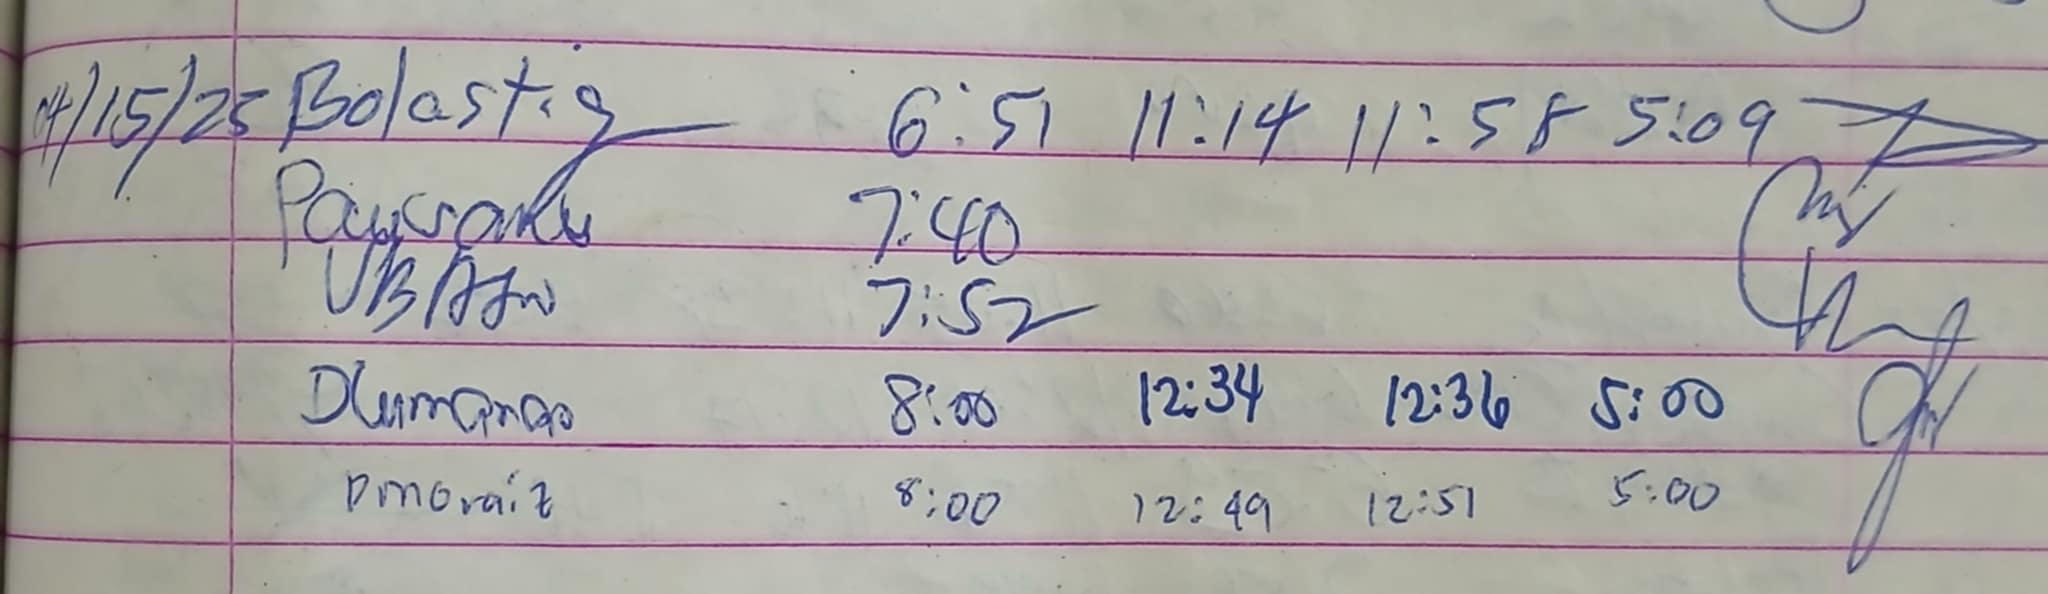 04/15/25 Bolastig 6:51 11:14 11:58 5:09
7:40
7:52
Dlumanao 8:00 12:34 12:36 5:00
8:00 12:49 12:51 5:00